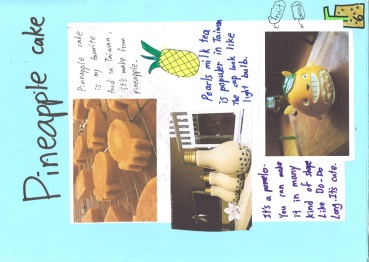 Pineapple cake
Pineapple cake
is my favorite
food in Taiwan,
it's make from
pineapple.
Pearls milk tea
is populer in Taiwan
The cup look like
light bulb.
It's a pomelo.
You can make
it in many
kind of shape
Like Do-Do
Long. It's cute.